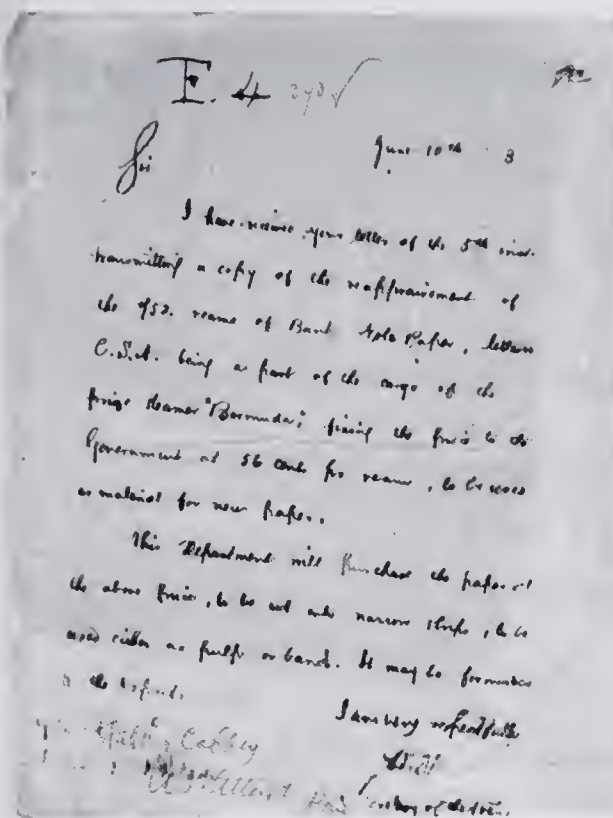 F. 4
June 10th 3
Sir
I have receive your letter of the 5th inst.
transmitting a copy of the reappraisement of
the 950. reams of Bank Note Paper, letters
C.S.A. being a part of the cargo of the
prize steamer "Bermuda", fixing the price to the
Government at 56 cents per ream, to be used
as material for new paper.
This Department will purchase the paper at
the above price, to be cut into narrow strips, to be
used either as pulp or bands. It may be forwarded
I am very respectfully